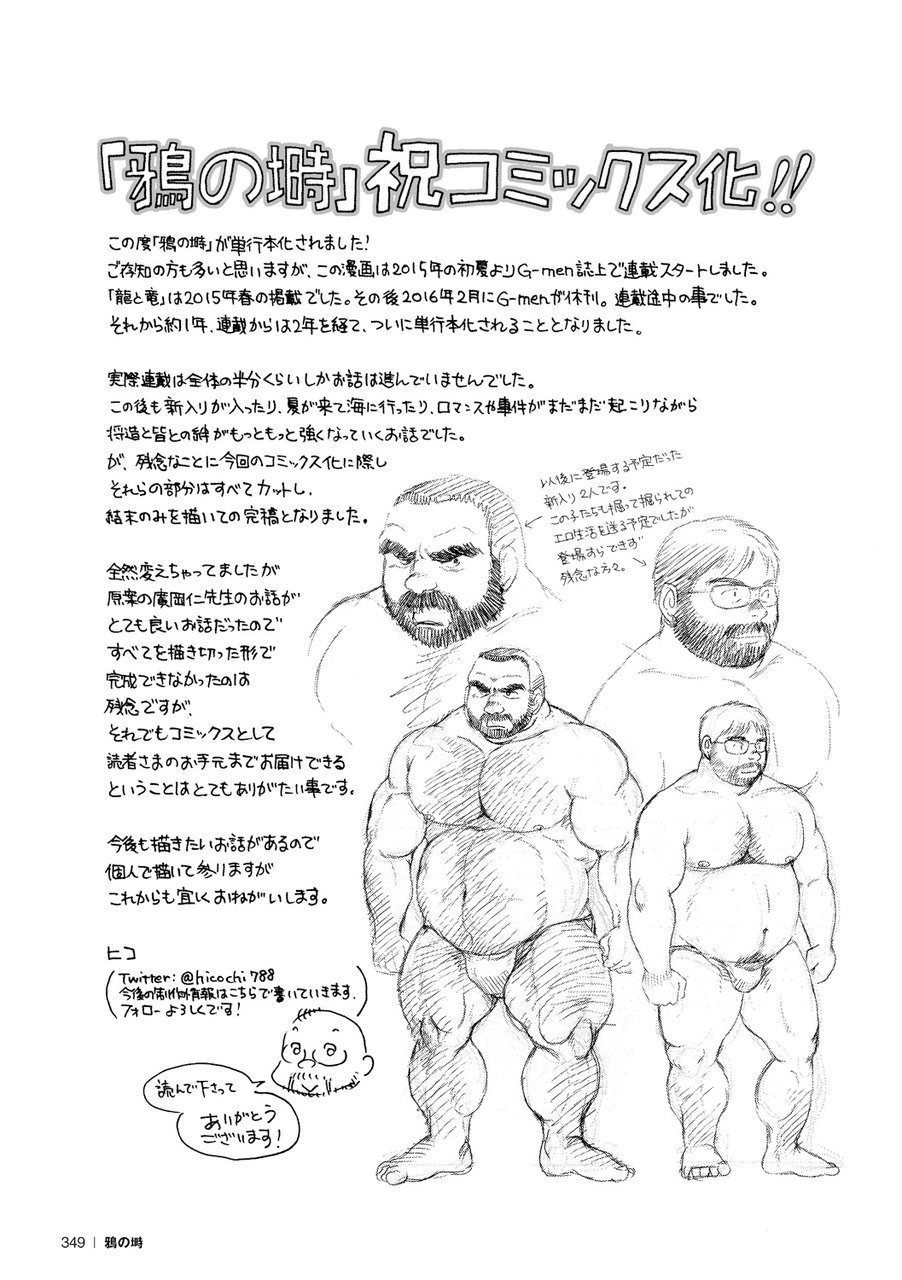 「鴉の塒」祝コミックス化!!
この度「鴉の塒」が単行本化されました!
ご存知の方も多いと思いますが、この漫画は2015年の初夏よりG-men誌上で連載スタートしました。
「龍と竜」は2015年春の掲載でした。その後2016年2月にG-menが休刊。連載途中の事でした。
それから約1年、連載からは2年を経て、ついに単行本化されることとなりました。
実際連載は全体の半分くらいしかお話は進んでいませんでした。
この後も新入りが入ったり、夏が来て海に行ったり、ロマンスや事件がまだまだ起こりながら
将造と皆との絆がもっともっと強くなっていくお話でした。
が、残念なことに今回のコミックス化に際し
それらの部分はすべてカットし、
結末のみを描いての完稿となりました。
以後に登場する予定だった
新入り2人です。
この子たちも掘って掘られての
エロ生活を送る予定でしたが
登場すらできず
残念な方々。
全然変えちゃってましたが
原案の廣岡仁先生のお話が
とても良いお話だったので
すべてを描き切った形で
完成できなかったのは
残念ですが、
それでもコミックスとして
読者さまのお手元までお届けできる
ということはとてもありがたい事です。
今後も描きたいお話があるので
個人で描いて参りますが
これからも宜しくおねがいします。
ヒコ
Twitter: @hicochi788
今後の制作情報はこちらで書いていきます.
フォローよろしくです!
読んで下さって
ありがとう
ございます!
349 | 鴉の塒